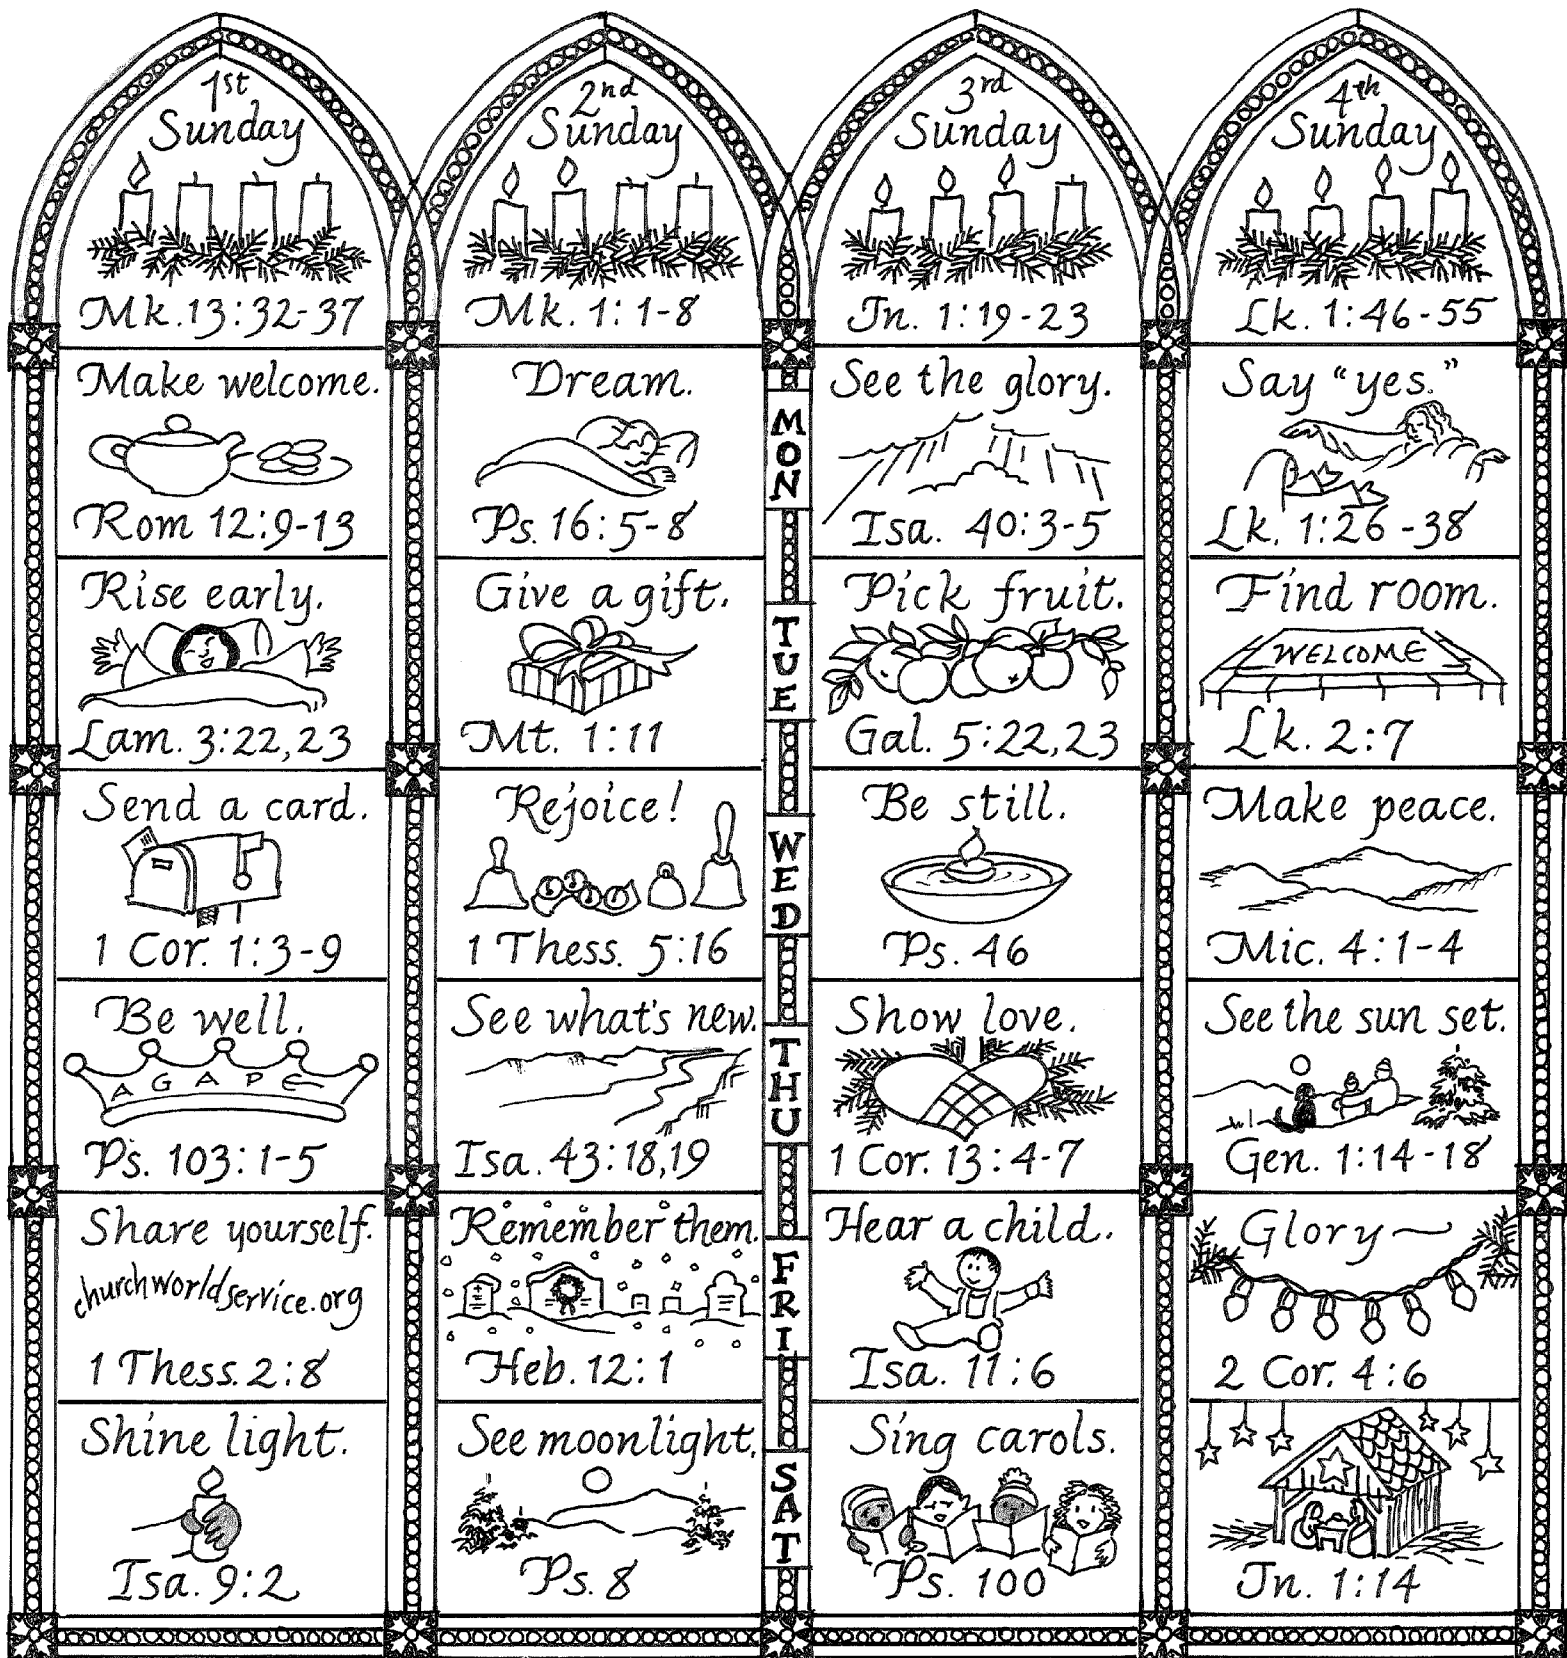 1st
Sunday
Mk. 13:32-37
Make welcome.
Rom 12:9-13
Rise early.
Lam. 3:22,23
Send a card.
1 Cor. 1:3-9
Be well.
AGAPE
Ps. 103:1-5
Share yourself.
churchworldservice.org
1 Thess. 2:8
Shine light.
Isa. 9:2
2nd
Sunday
Mk. 1:1-8
Dream.
Ps. 16:5-8
Give a gift.
Mt. 1:11
Rejoice!
1 Thess. 5:16
See what's new.
Isa. 43:18,19
Remember them.
Heb. 12:1
See moonlight.
Ps. 8
MON
TUE
WED
THU
FRI
SAT
3rd
Sunday
Jn. 1:19-23
See the glory.
Isa. 40:3-5
Pick fruit.
Gal. 5:22,23
Be still.
Ps. 46
Show love.
1 Cor. 13:4-7
Hear a child.
Isa. 11:6
Sing carols.
Ps. 100
4th
Sunday
Lk. 1:46-55
Say "yes."
Lk. 1:26-38
Find room.
WELCOME
Lk. 2:7
Make peace.
Mic. 4:1-4
See the sun set.
Gen. 1:14-18
Glory~
2 Cor. 4:6
Jn. 1:14